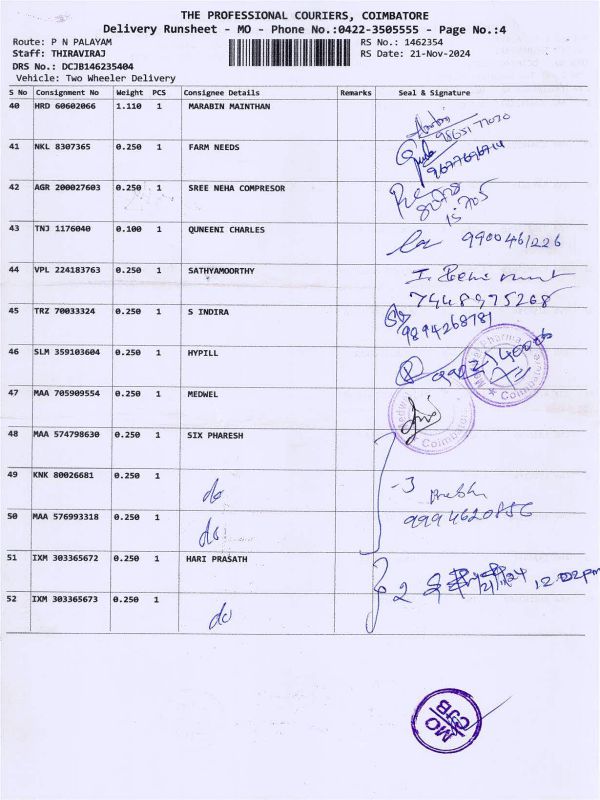 THE PROFESSIONAL COURIERS, COIMBATORE
Delivery Runsheet - MO - Phone No.:0422-3505555 - Page No.:4
Route: P N PALAYAM RS No.: 1462354
Staff: THIRAVIRAJ RS Date: 21-Nov-2024
DRS No.: DCJB146235404
Vehicle: Two Wheeler Delivery
S No Consignment No Weight PCS Consignee Details Remarks Seal & Signature
40 HRD 60602066 1.110 1 MARABIN MAINTHAN
41 NKL 8307365 0.250 1 FARM NEEDS
9677696714
42 AGR 200027603 0.250 1 SREE NEHA COMPRESOR
43 TNJ 1176040 0.100 1 QUNEENI CHARLES
9900461226
44 VPL 224183763 0.250 1 SATHYAMOORTHY
7448975268
45 TRZ 70033324 0.250 1 S INDIRA
9894268781
46 SLM 359103604 0.250 1 HYPILL
47 MAA 705909554 0.250 1 MEDWEL
Coimbatore
48 MAA 574798630 0.250 1 SIX PHARESH
49 KNK 80026681 0.250 1 do -3
50 MAA 576993318 0.250 1 do
51 IXM 303365672 0.250 1 HARI PRASATH
2 12.02pm
52 IXM 303365673 0.250 1 do
MO
CJB